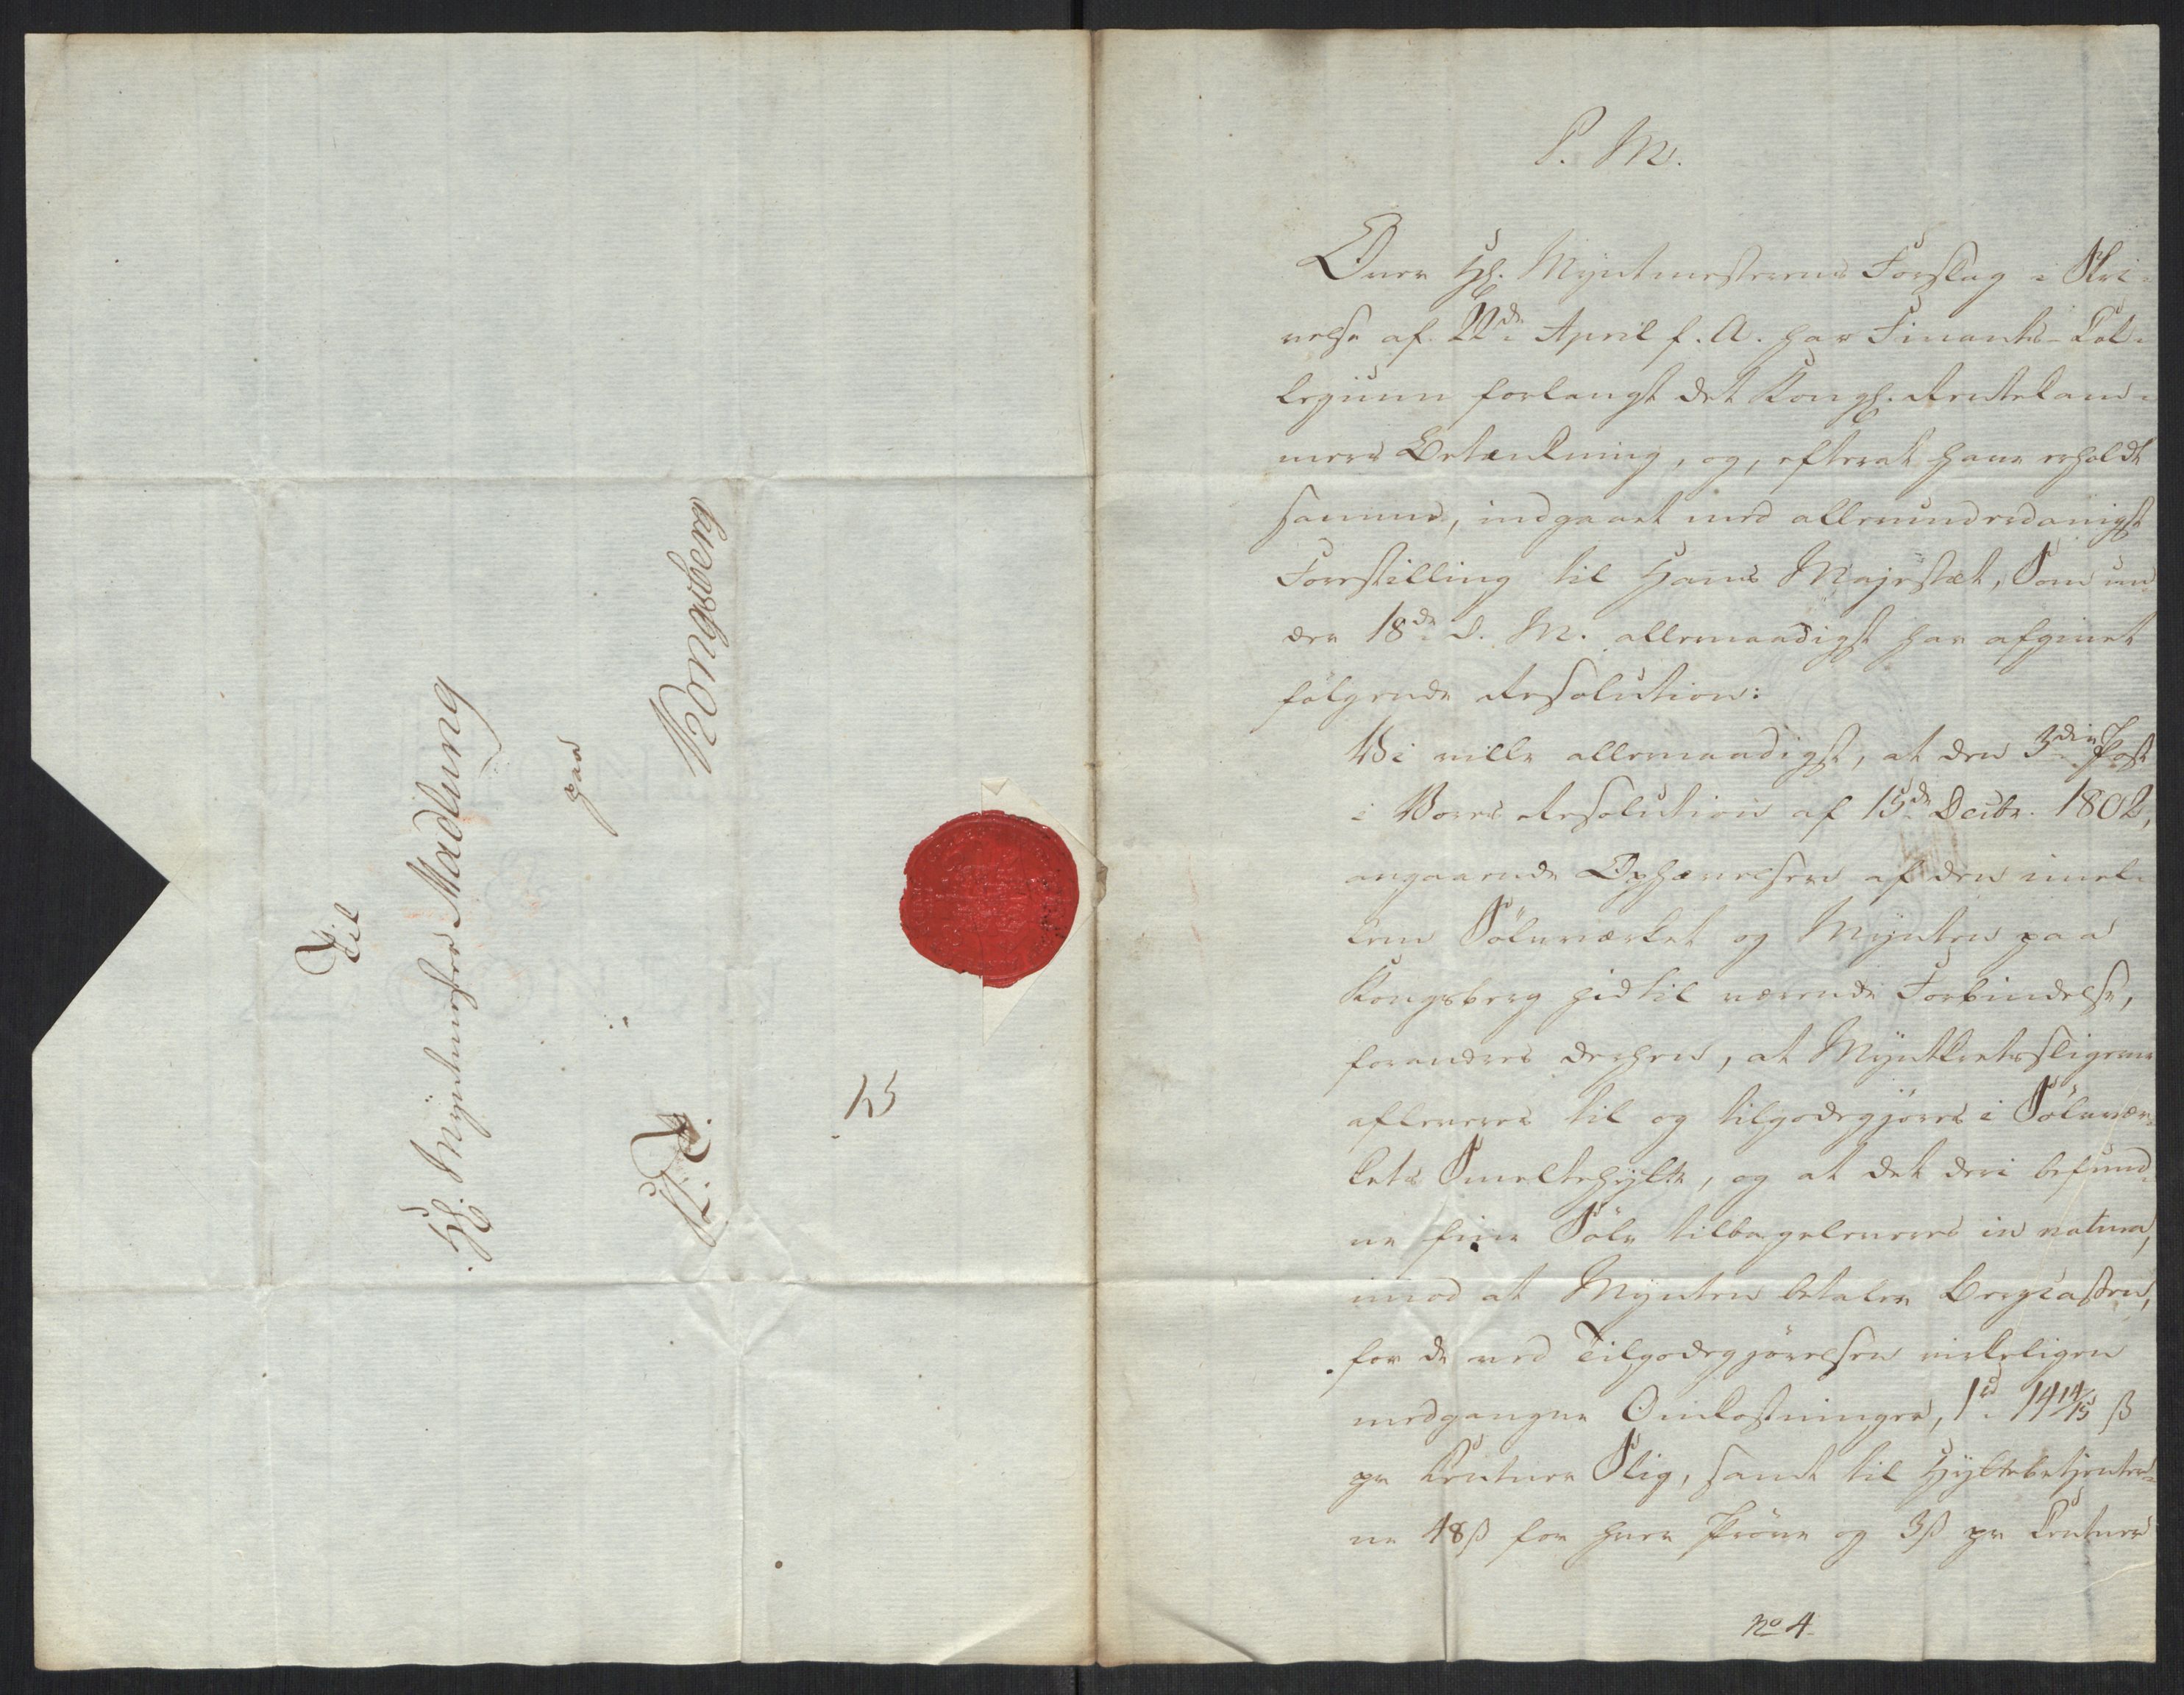 Til
Hr. Myntmester Madlung
paa
Kongsberg
K. T.
15
P. M.
Over Hr. Myntmesterens Forslag i Skri-
velse af 22de April f. A. har Finants-Col-
legium forlangt det Kongl. Rentekam-
mers Betænkning, og, efterat have erholdt
samme, indgaaet med allerunderdanigst
Forestilling til Hans Majestæt, Som un-
der 18de d. M. allernaadigst har afgivet
følgende Resolution:
Vi ville allernaadigst, at den 3die Post
i Vores Resolution af 15de Decbr. 1802,
angaaende Ophævelsen af den imel-
lem Sølvværket og Mynten paa
Kongsberg hidtil værende Forbindelse,
forandres derhen, at Myntkretsligerne
afleveres til og tilgodegjøres i Sølvvær-
kets Smeltehytte, og at det deri befund-
ne fine Sølv tilbageleveres in natura,
imod at Mynten betaler Bergcassen,
for de ved Tilgodegjørelsen virkeligen
medgangne Omkostninger, 1 rd 14 14/15 ß
pr Centner Slig, samt til Hyttebetjenter-
ne 48 ß for hver Prøve og 3 ß pr Centner
No 4